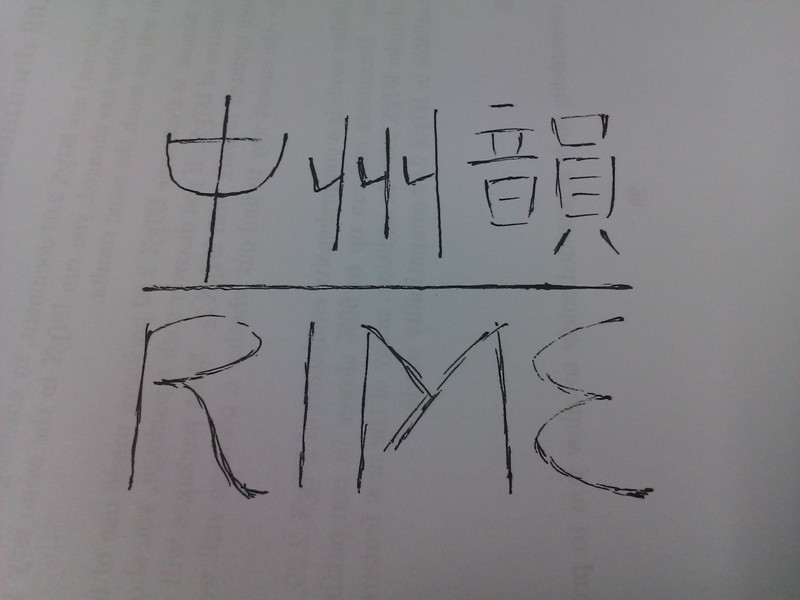 中州韻
RIME